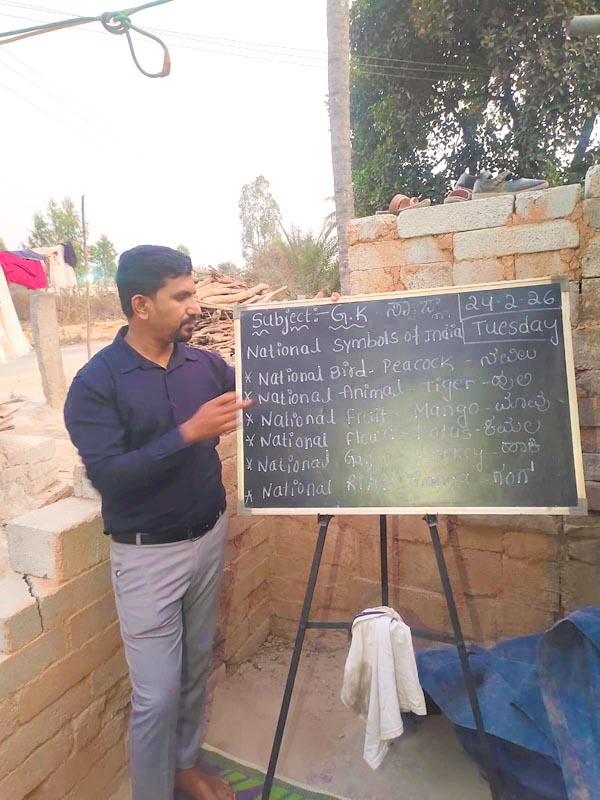 Subject:- G.K ಸಾ.ಜ್ಞ
24-2-26
Tuesday
National Symbols of India
* National Bird- Peacock - ನವಿಲು
* National Animal Tiger - ಹುಲಿ
* National Fruit - Mango - ಮಾವು
* National Flower - Lotus - ಕಮಲ
* National - ಹಾಕಿ
* National River - Ganga - ಗಂಗೆ